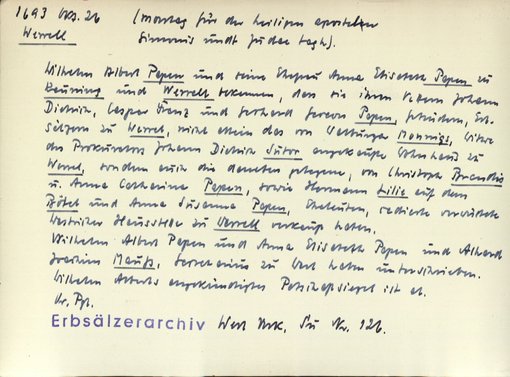 1693 Okt. 26 (Montag für der heiligen apostelen
Werell Simonis undt Judae tagh).
Wilhelm Albert Papen und seine Ehefrau Anna Elisabeth Papen zu
und Werrell bekennen, das sie ihren Vettern Johann
Dietrich, Caspar Franz und Gerhard Papen, Gebrüdern, Erb-
sälzern zu Werell, nicht allein das von Walburga, Witwe
des Prokurators Johann Dietrich Sutor angekaufte Wohnhaus zu
Werell, sondern auch die daneben gelegene, von Christoph Brandis
u. Anna Catharina Papen, sowie Hermann Lilie auf dem
und Anna Susanna Papen, Eheleuten,
Hausstelle zu Werell verkauft haben.
Wilhelm Albert Papen und Anna Elisabeth Papen und
Joachim, Secretarius zu Werl haben unterschrieben.
Wilhelm Alberts angekündigtes Petschaftsiegel ist ab.
Or. Pgt.
Erbsälzerarchiv Werl Urk. Nr. 126.